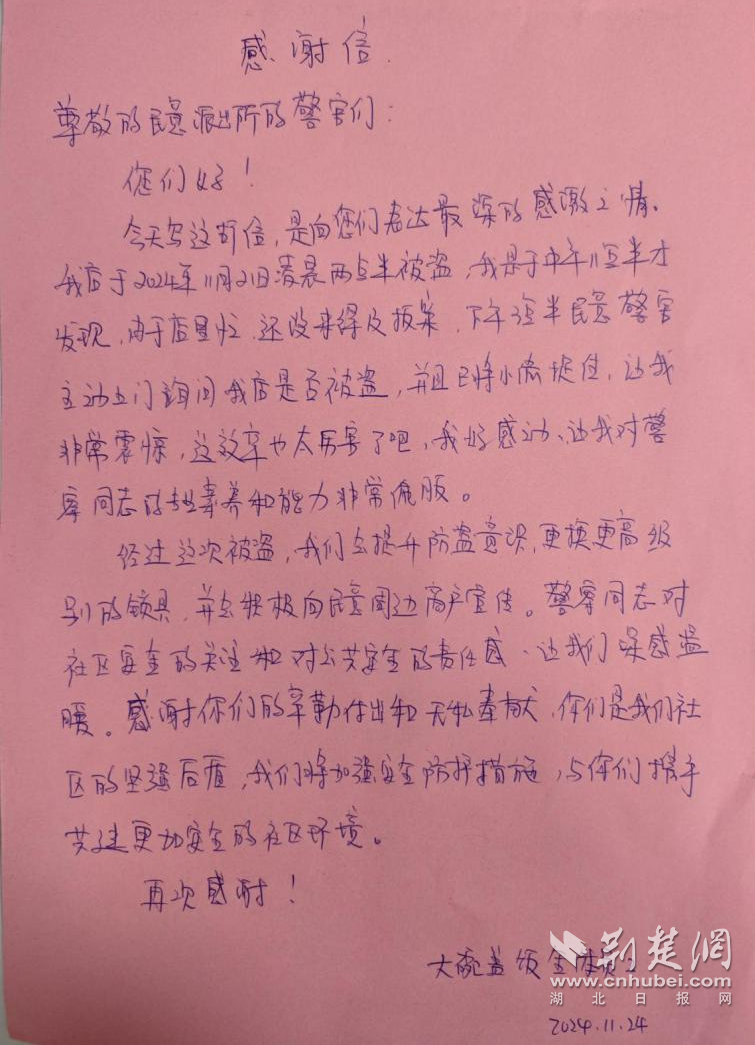 感谢信
尊敬的民意派出所的警官们:
您们好!
今天写这封信,是向您们表达最深的感激之情、
我店于2024年11月21日凌晨两点半被盗,我是于中午11点半才
发现,由于店里忙,还没来得及报案,下午3点半民意警官
主动上门询问我店是否被盗,并且已将小偷捉住,让我
非常震惊,这效率也太厉害了吧,我好感动、让我对警
察同志的专业素养和能力非常佩服。
经过这次被盗,我们会提升防盗意识,更换更高级
别的锁具,并会积极向民意周边商户宣传。警察同志对
社区安全的关注和对公共安全的责任感、让我们深感温
暖。感谢你们的辛勤付出和无私奉献,你们是我们社
区的坚强后盾,我们将加强安全防护措施,与你们携手
共建更加安全的社区环境。
再次感谢!
大碗盖饭全体员工
2024.11.24
荆楚网
www.cnhubei.com
湖北日报网